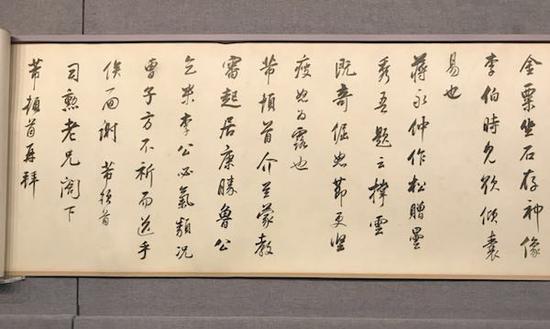 金粟坐石存神像
李伯時欲傾囊
易也
蔣永仲作松贈曇
秀吾題云撑雲
既奇倔節更堅
瘦也
芾頓首介至蒙教
審起居康勝魯公
乞米李公必氣類況
曹子方不祈而送乎
俟面謝芾頓首
司勳老兄閣下
芾頓首再拜